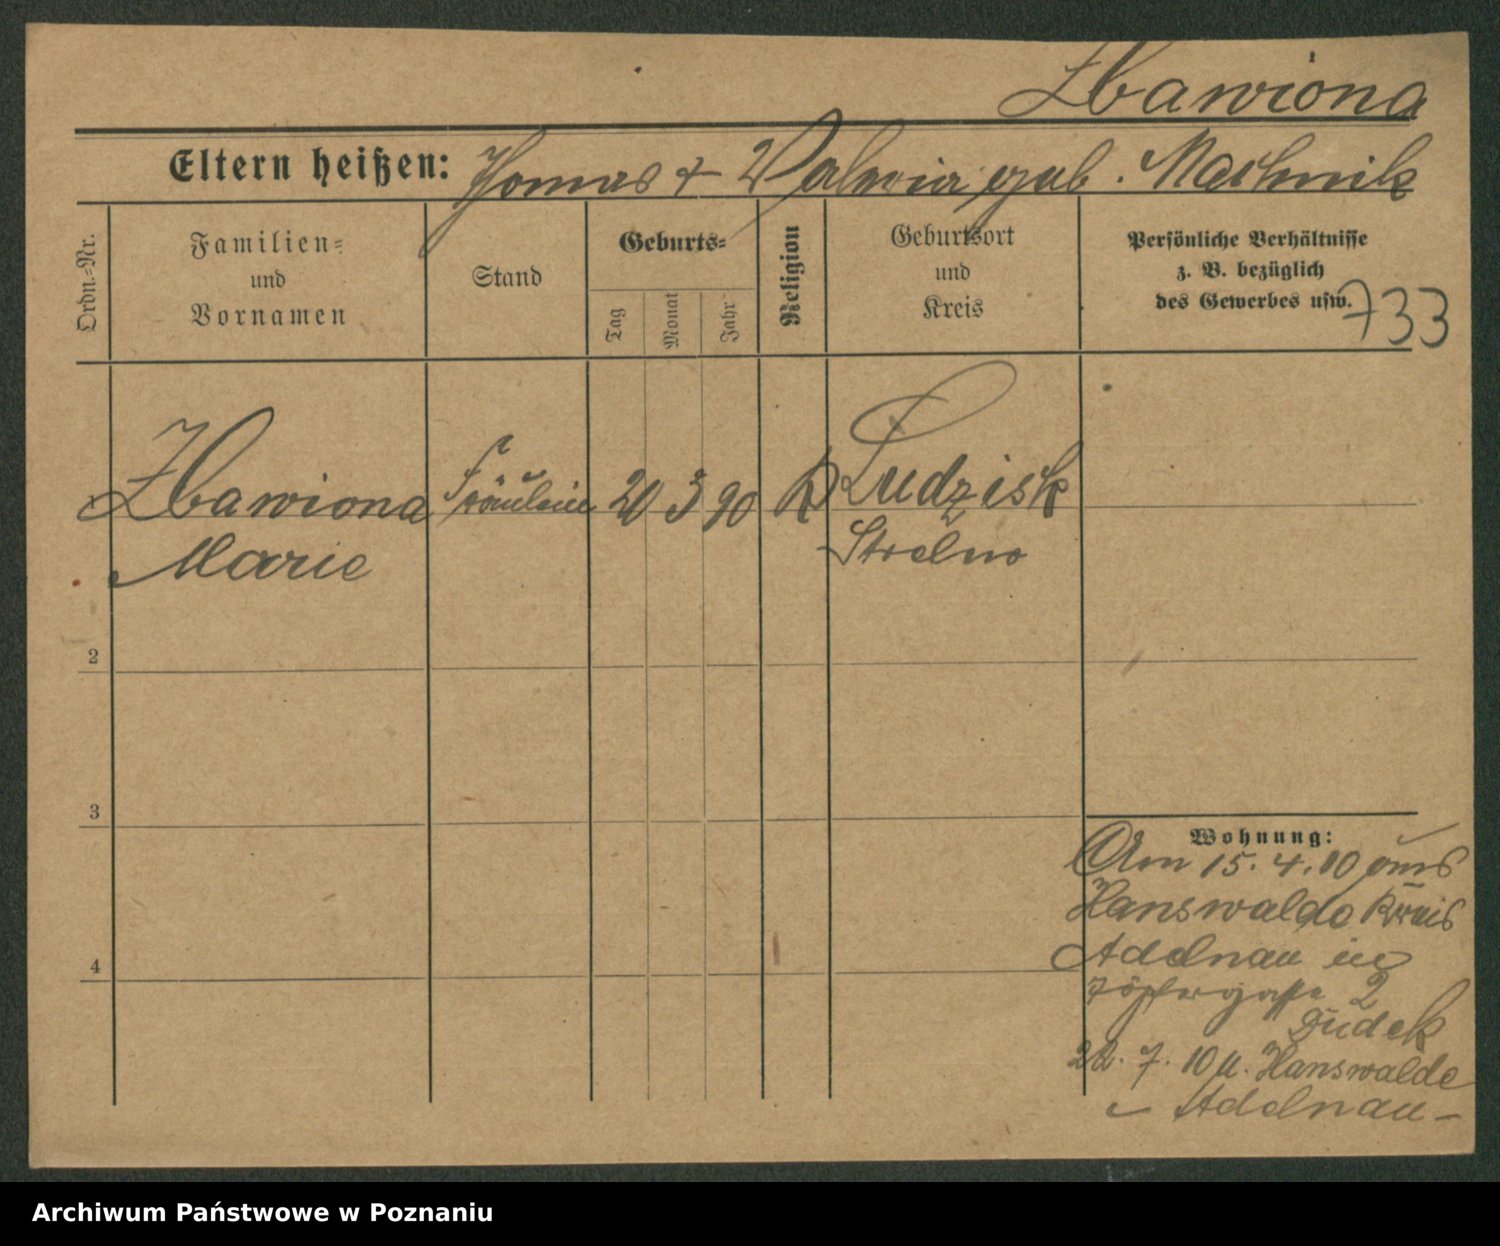 Zbawiona
Eltern heißen: Thomas + Valeria geb. Machnik
Ordn.-Nr.
Familien-
und
Vornamen
Stand
Geburts-
Tag
Monat
Jahr
Religion
Geburtsort
und
Kreis
Persönliche Verhältnisse
z. B. bezüglich
des Gewerbes usw.
733
Zbawiona Fräulein 20 3 90 K Ludzisk
Marie Strelno
2
3
4
Wohnung:
Am 15. 4. 10 aus
Hanswalde Kreis
Adelnau in
Töpfergasse 2
Dudek
22. 7. 10 n. Hanswalde
Adelnau -
Archiwum Państwowe w Poznaniu